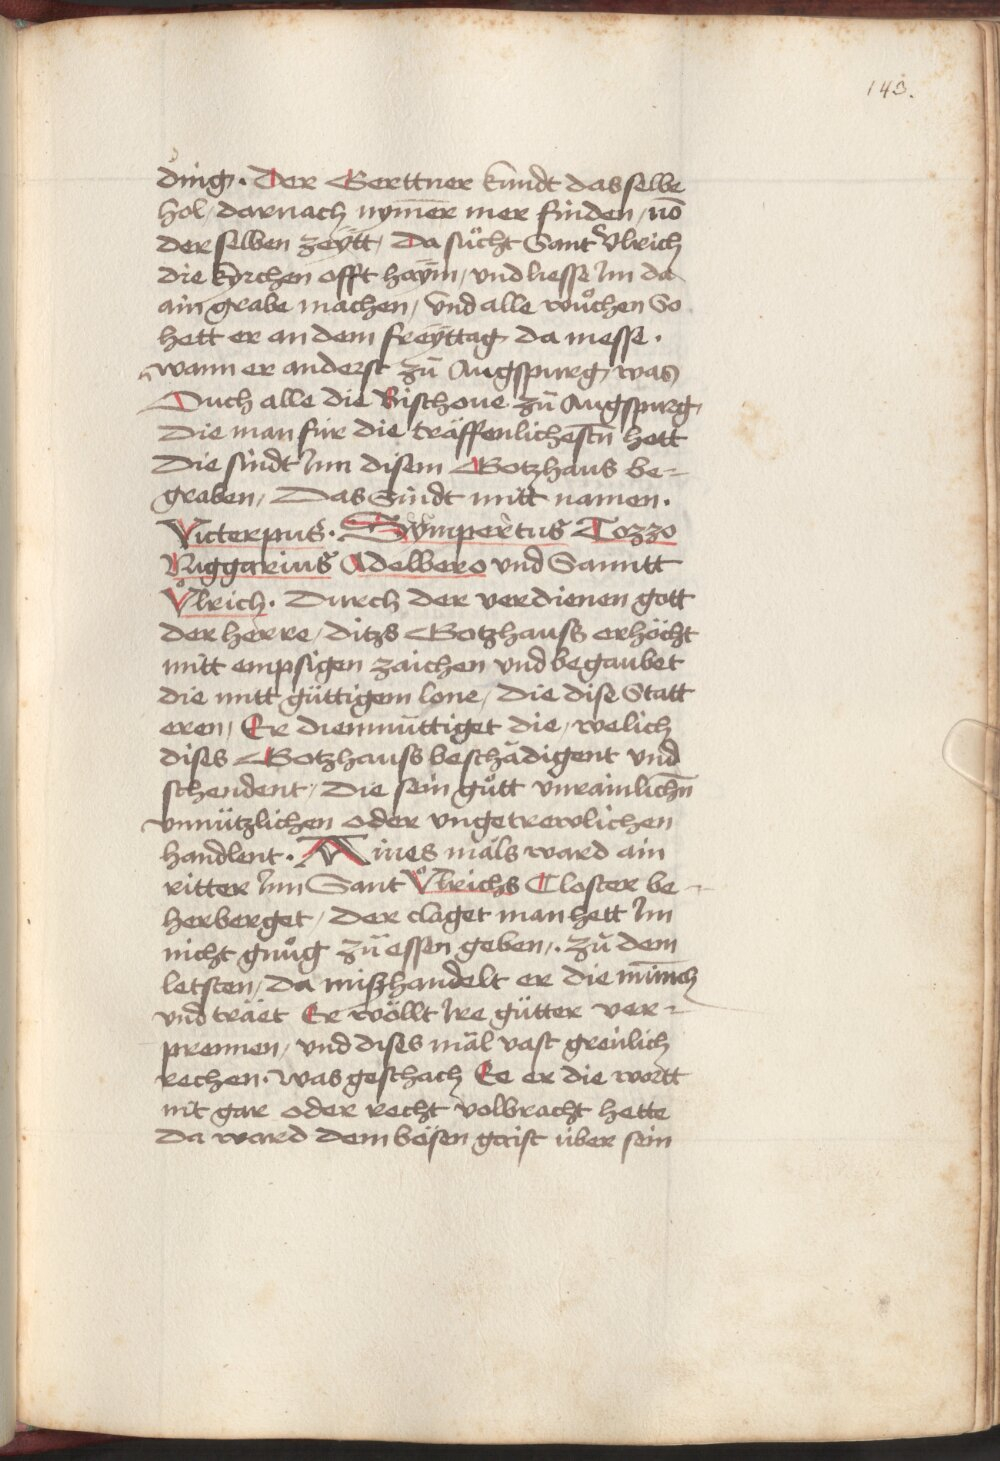 143.
ding. Der Gerttner kundt dasselbe
hol, darnach nymēr mer finden, uō
der selben zeÿtt, Da sůcht Sant Vͦlrich
die kÿrchen offt haÿm, und liesse Im da
ain grabe machen, und alle wuͦchen So
hett er an dem freÿttag da messe.
wann er anderst zů Augspurg, was
Auch alle die Bischoue zů Augspurg,
Die man für die träffenlichestn̄ hett
Die sindt Inn disem Gotzhaus be-
graben, Das Sindt mitt namen.
Victerpus. Sÿmpertus Tozzo
Riggarius Adelbero und Sanntt
Vͦlrich. Durch der verdienen gott
der herre, ditzs Gotzhauss erhöcht
mitt empsigen zaichen und begaubet
die mitt güttigem lone, die dise Statt
eren, Er diemnüttiget die, welich
dises Gotzhauss beschädigent und
schendent, Die sein gůtt unrainlichn̄
unnützlichen oder ungetrewlichen
handlent. Aines mäls ward ain
ritter Inn Sant Vͦlrichs Closter be-
herberget, der claget man hett Im
nicht gnuͦg zů essen geben,. zů dem
letsten, da mißhandelt er die münch
und träet Er wöllt Ire gütter ver-
prennen, und dises mäl vast greülich
rechen. was geschach Ee er die wortt
nit gar oder recht volbracht hette
Da ward dem bösen gaist über sein